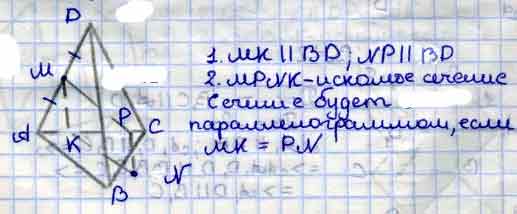 D
M
A
K
P
C
B
N
1. MK || BD, NP || BD
2. MPNK - искомое сечение
Сечение будет
параллелограммом, если
MK = PN